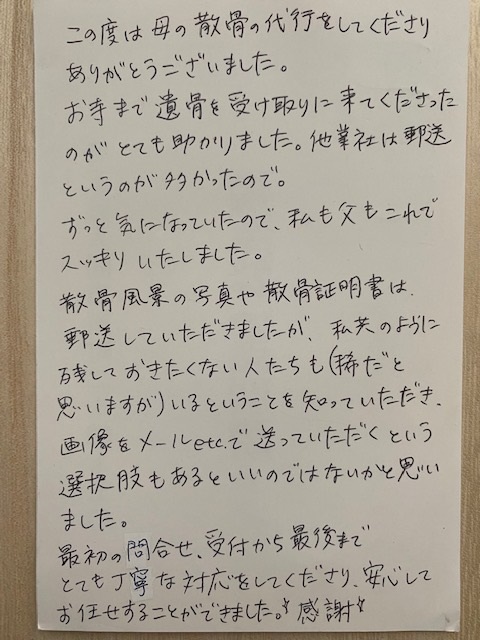 この度は母の散骨の代行をしてくださり
ありがとうございました。
お寺まで遺骨を受け取りに来てくださった
のがとても助かりました。他業社は郵送
というのが多かったので。
ずっと気になっていたので、私も父もこれで
スッキリいたしました。
散骨風景の写真や散骨証明書は、
郵送していただきましたが、私共のように
残しておきたくない人たちも(稀だと
思いますが)いるということを知っていただき、
画像をメールetc.で送っていただくという
選択肢もあるといいのではないかと思い
ました。
最初の問合せ、受付から最後まで
とても丁寧な対応をしてくださり、安心して
お任せすることができました。感謝